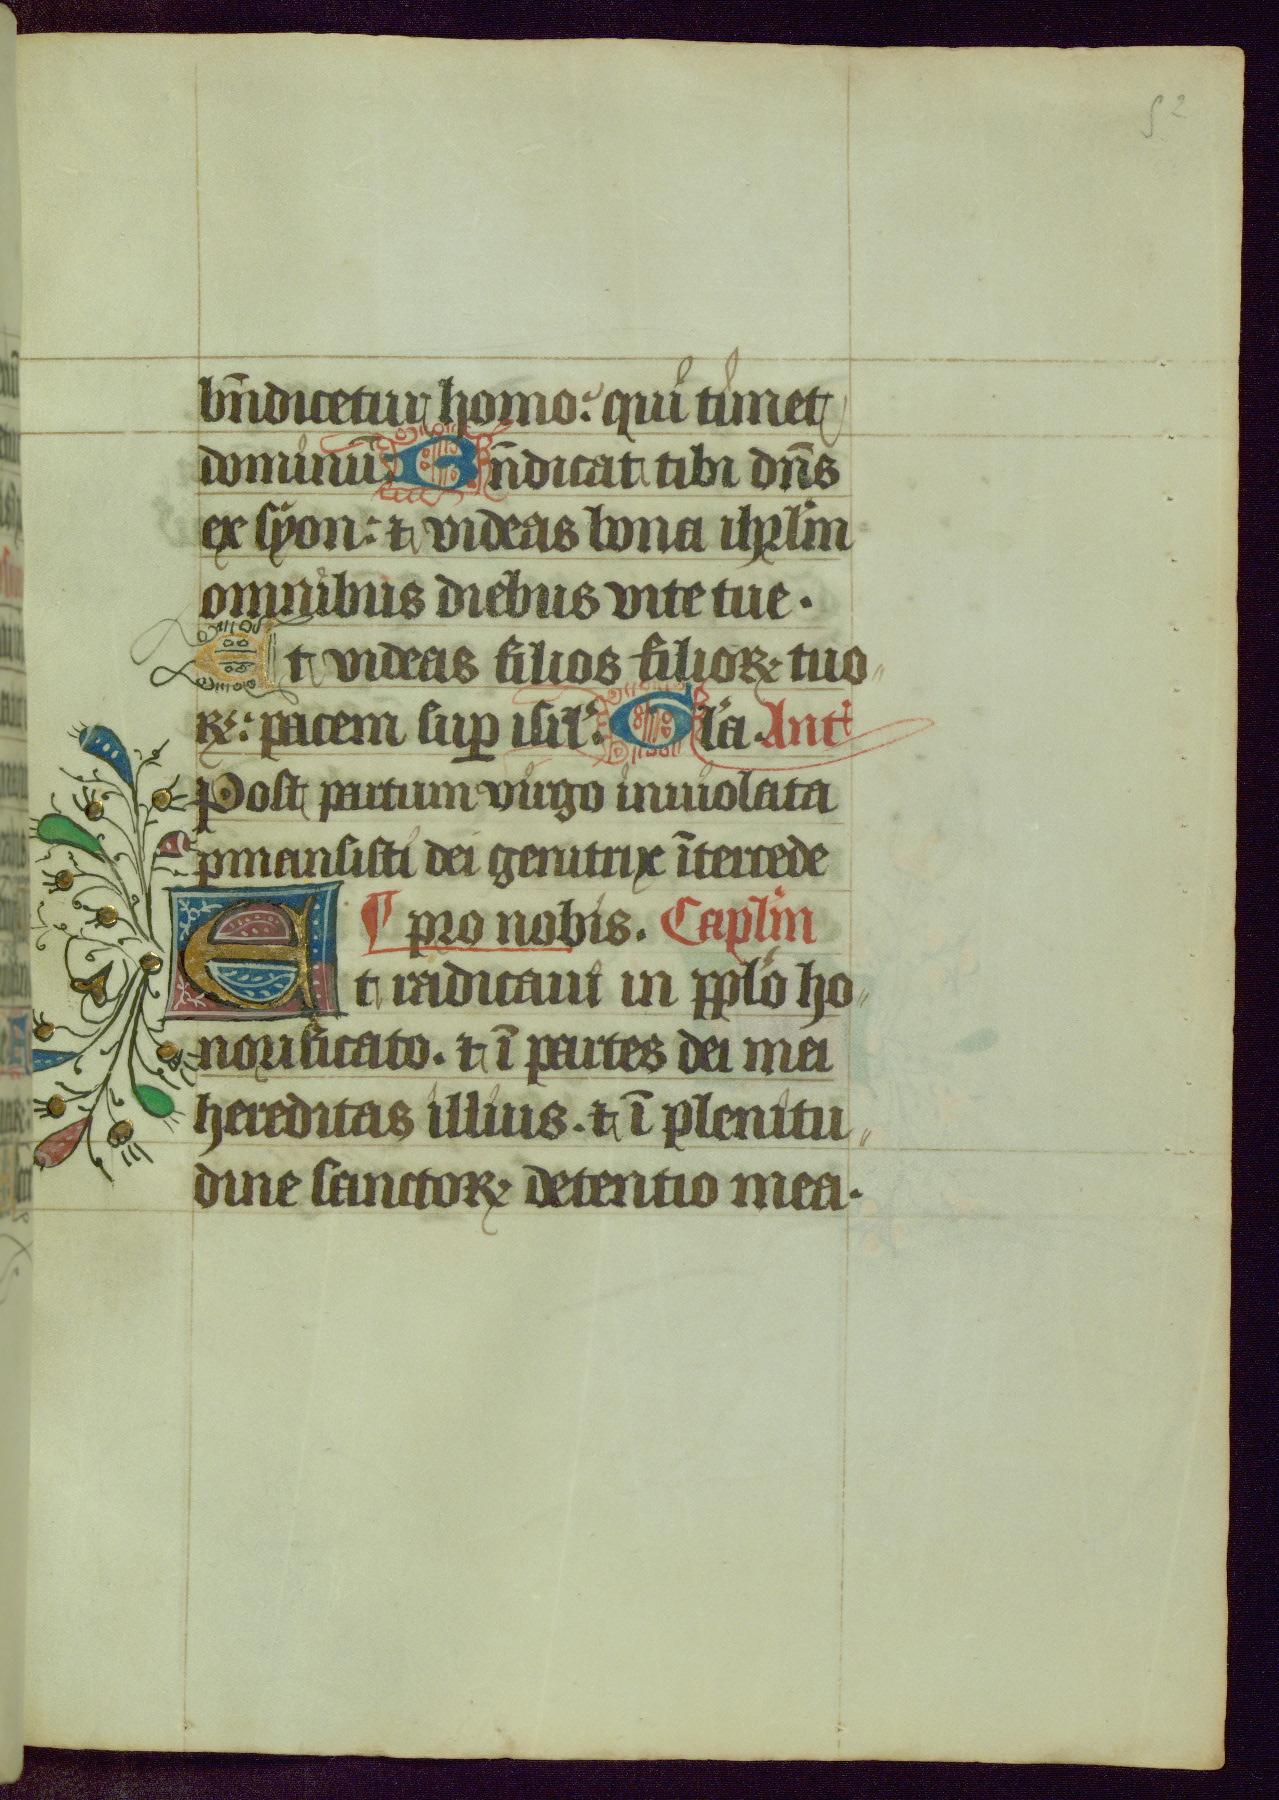 52
bn̄dicetur homo: qui timet
dominū. Bn̄dicat tibi dn̄s
ex syon: ⁊ videas bona ihrl̄m
omnibus diebus vite tue.
Et videas filios filioꝝ tuo
ꝝ: pacem suꝑ isrl̄. Gl̄a. Ant̄
Post partum virgo inuiolata
ꝑmansisti dei genitrix ītercede
¶ pro nobis. Capl̄m
Et radicaui in ppl̄o ho
norificato. ⁊ ī partes dei mei
hereditas illius. ⁊ ī plenitu
dine sanctoꝝ detentio mea.